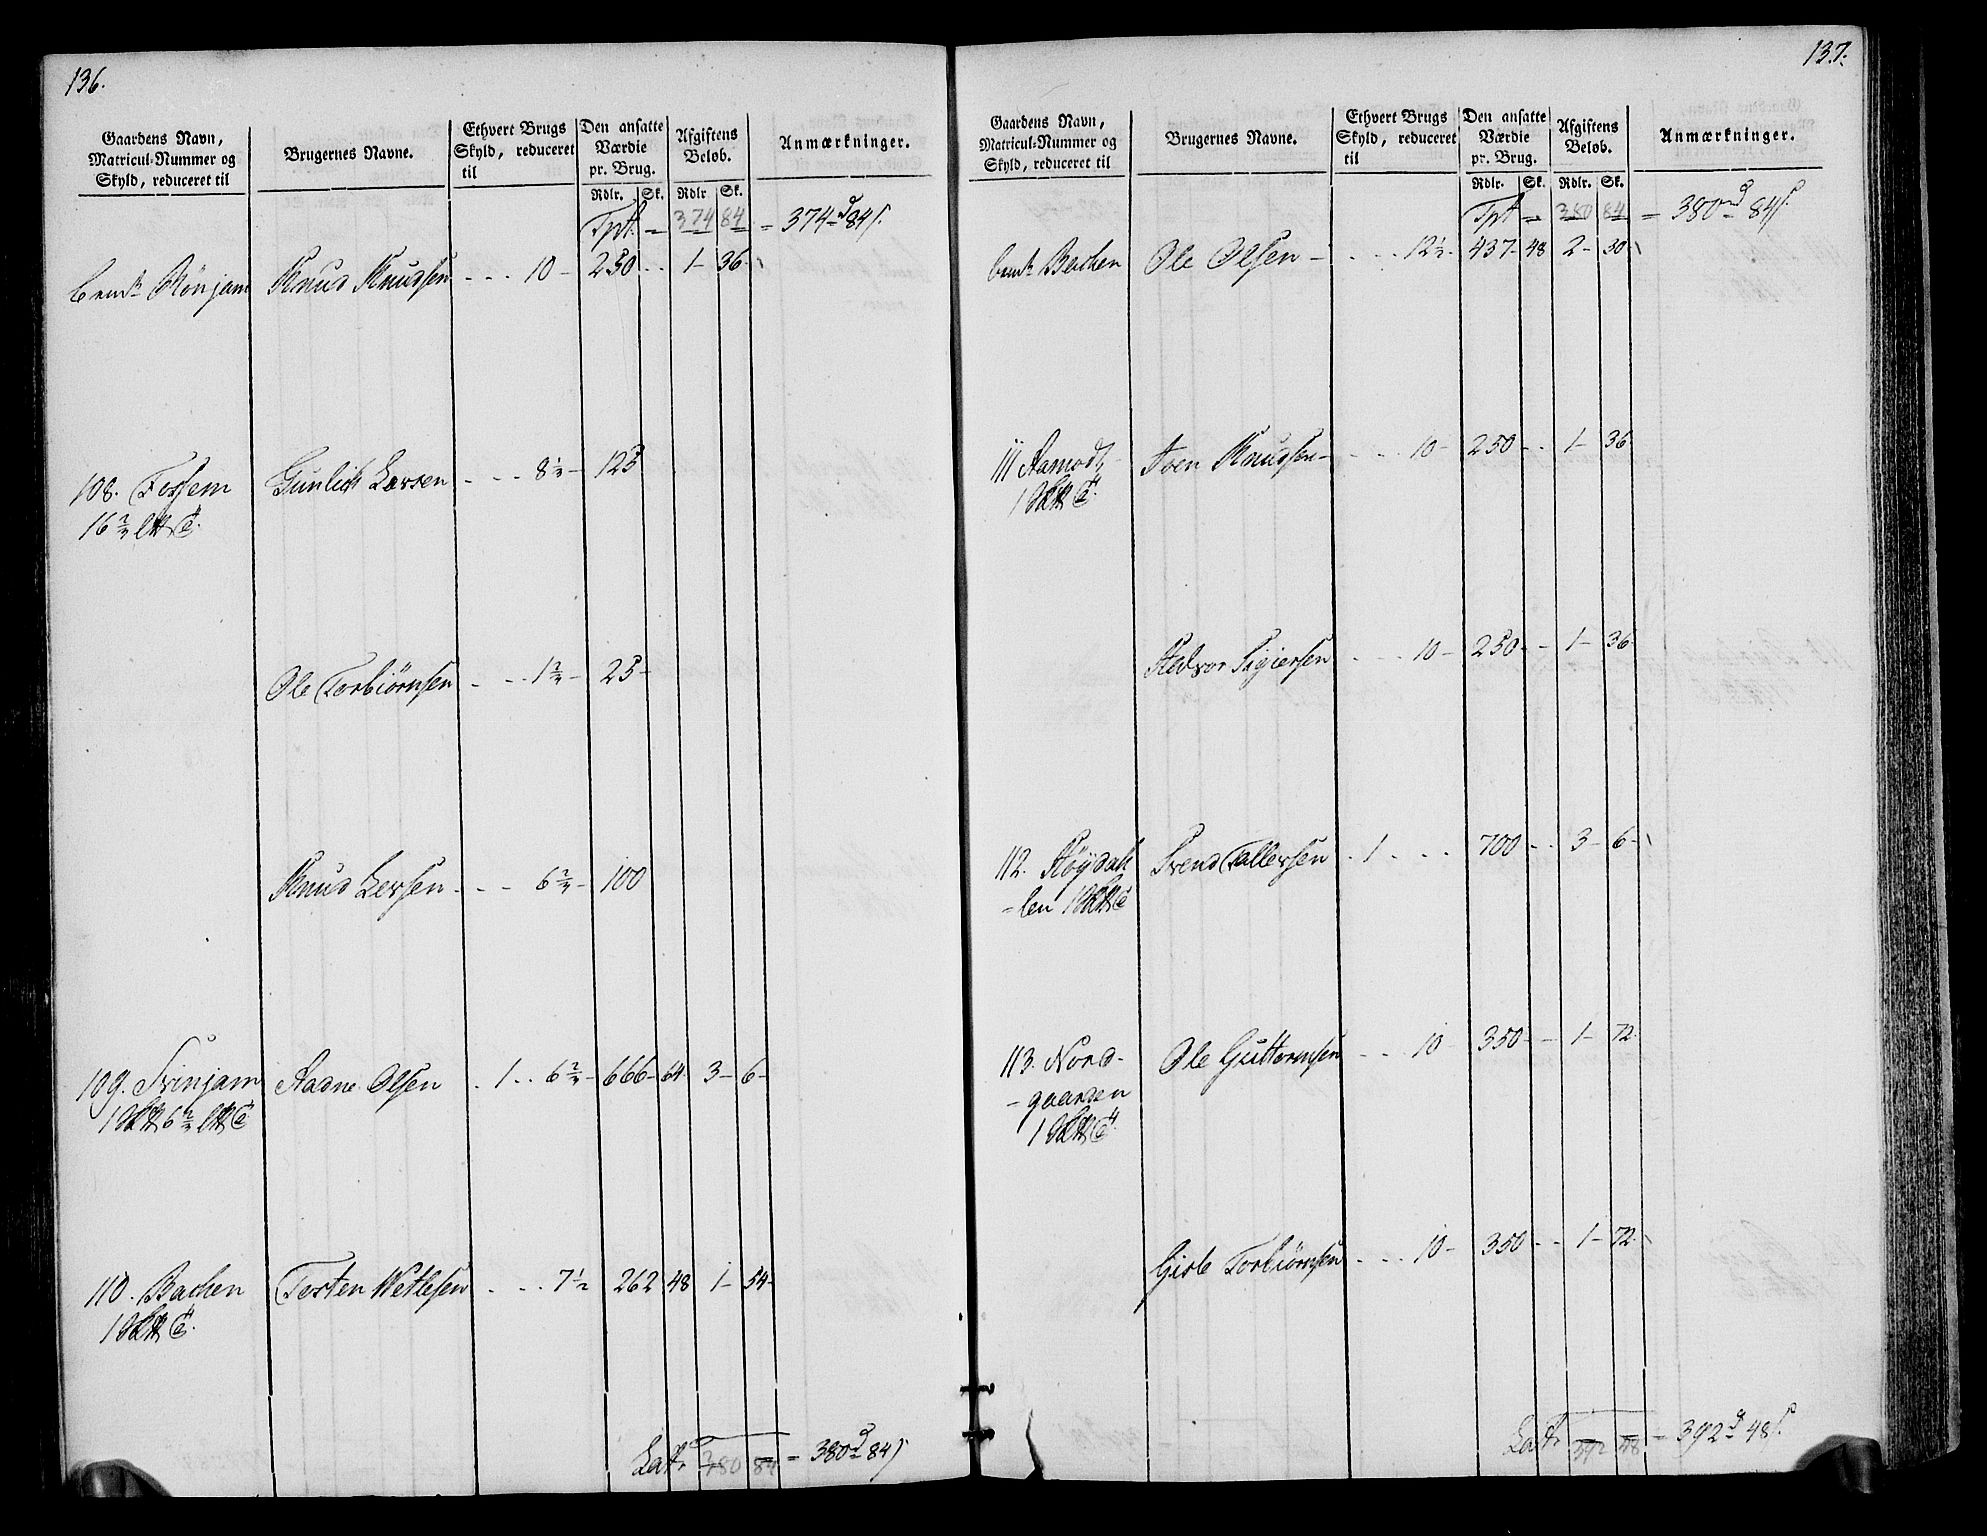 136.
Gaardens Navn, Matricul-Nummer og Skyld, reduceret til | Brugernes Navne. | Ethvert Brugs Skyld, reduceret til | Den ansatte Værdie pr. Brug. Rdlr. Sk. | Afgiftens Beløb. Rdlr Sk. | Anmærkninger.
Tpt. = 374 84 = 374 84
Rønjam Knud Knudsen - - - 10 - 250 - - 1 - 36 -
108. Fossem Gunlich Larsen - - - 8 1/2 - 125
16 2/3
Ole Torbiørnsen - - - 1 2/3 - 25 -
Knud Larsen - - - 6 2/3 - 100
109. Svinjam Aadne Olsen . 1 . . 6 2/3 - 666 - 64 3 - 6 -
1 6 2/3
110. Bachen Torsten Wetlesen . . . 7 1/2 262 48 1 - 54 -
1
Latr. 380 84 = 380 84
137.
Gaardens Navn, Matricul-Nummer og Skyld, reduceret til | Brugernes Navne. | Ethvert Brugs Skyld, reduceret til | Den ansatte Værdie pr. Brug. Rdlr. Sk. | Afgiftens Beløb. Rdlr. Sk. | Anmærkninger.
Tpt = 380 84 = 380 84
Bachen Ole Olsen - . - - 12 1/2 - 437 - 48 2 - 30
111 Aamodt Iven Knudsen - - - - 10 - 250 - - 1 - 36
1
Halvor Sigiersen - - - 10 - 250 - - 1 - 36
112. Høydal- Svend Tallevsen . 1 . . . 700 - - 3 - 6 -
-len 1
113. Nord- Ole Guttormsen - - - 10 350 - - 1 - 72
-gaarden
1
Gisle Torbiørnsen - - - 10 - 350 - - 1 - 72 -
Latr. 392 48 = 392 48